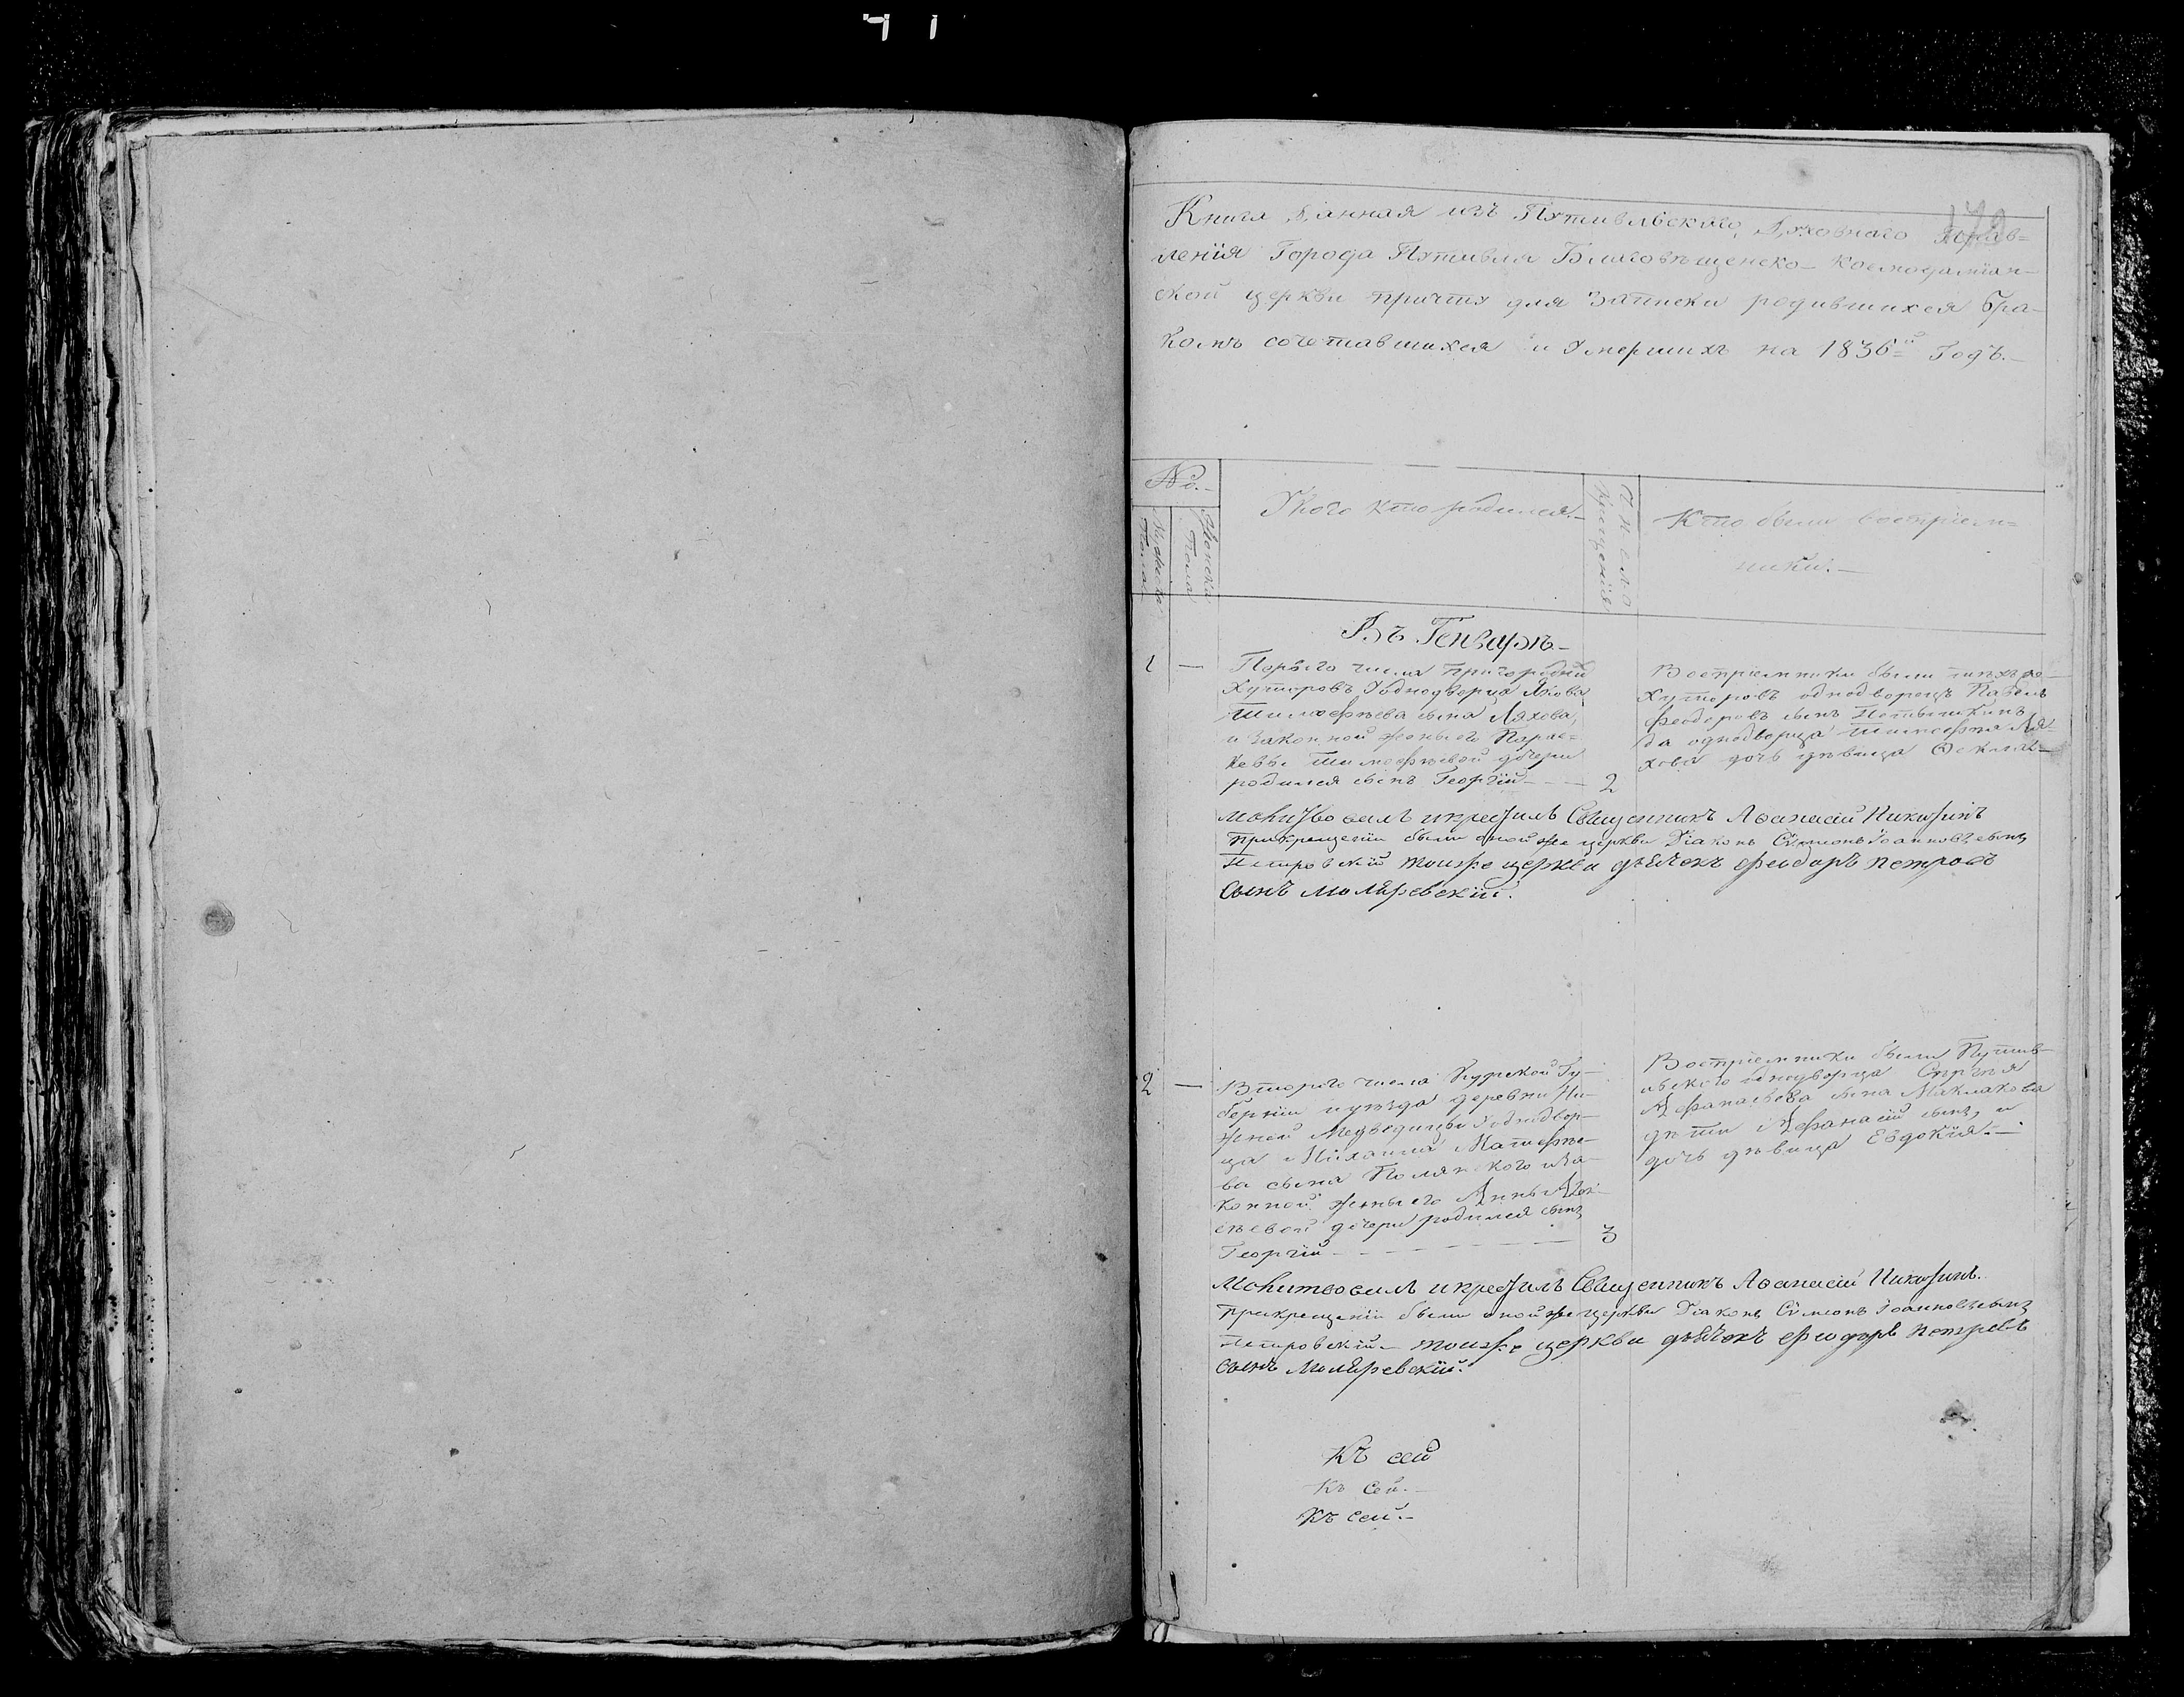 41
Книга Данная изъ Путивльскаго Духовнаго Прав=
ленія Города Путивля Благовѣщенско-Космодаміан-
ской церкви причту для Записки родившихся бра-
комъ сочетавшихся и Умершихъ на 1836й Годъ.-
№.-
Мужеска
Пола
Женска
Пола
У кого кто родился.-
Число
Крещенія
Кто были воспріем=
ники.-
Въ Генварѣ-
1 -
Перваго числа Пригородни
Хуторовъ Уоднодворца Якова
Тимофѣева сына Ляхова,
и Законной жены его Парас=
кевы Тимофѣевой дочери
родился сынъ Георгій - - - 2
Воспріемники были тѣхъ же
Хуторовъ однодворецъ Павелъ
Феодоровъ сынъ
да однодворца Тимофея Ля-
хова дочь дѣвица Ѳекла
Молитвовалъ и крестилъ Священникъ Аѳанасій Никитинъ
При крещеніи были оной же церкви Діаконъ Сѵмеонъ Іоанновъ сынъ
Петровскій тоиже церкви дьячекъ Феодоръ Петровъ
Сынъ Моляревскій.
2 -
Втораго числа Курской Гу-
берніи и уѣзда деревни Ни-
жней Медведицы Уоднодвор-
ца Михаила Матвѣе-
ва сына Полянского иЗа-
конной жены его Анны Алек-
сѣевой дочери родился сынъ
Георгій - - - - - - 3
Воспріемники были Путив-
льского однодворца Сергѣя
Афанасьева сына Маклакова
дѣти Афанасій сынъ, и
дочь дѣвица Евдокия.-
Молитвовалъ и крестилъ Священникъ Аѳанасій Никитинъ.
При крещеніи были оной же церкви Діаконъ Сѵмеонъ Іоанновъ сынъ
Петровскій.- тоиже церкви дьячекъ Феодоръ Петровъ
сынъ Моляревскій.
Къ сей
Къ Сей.-
Къ сей.-